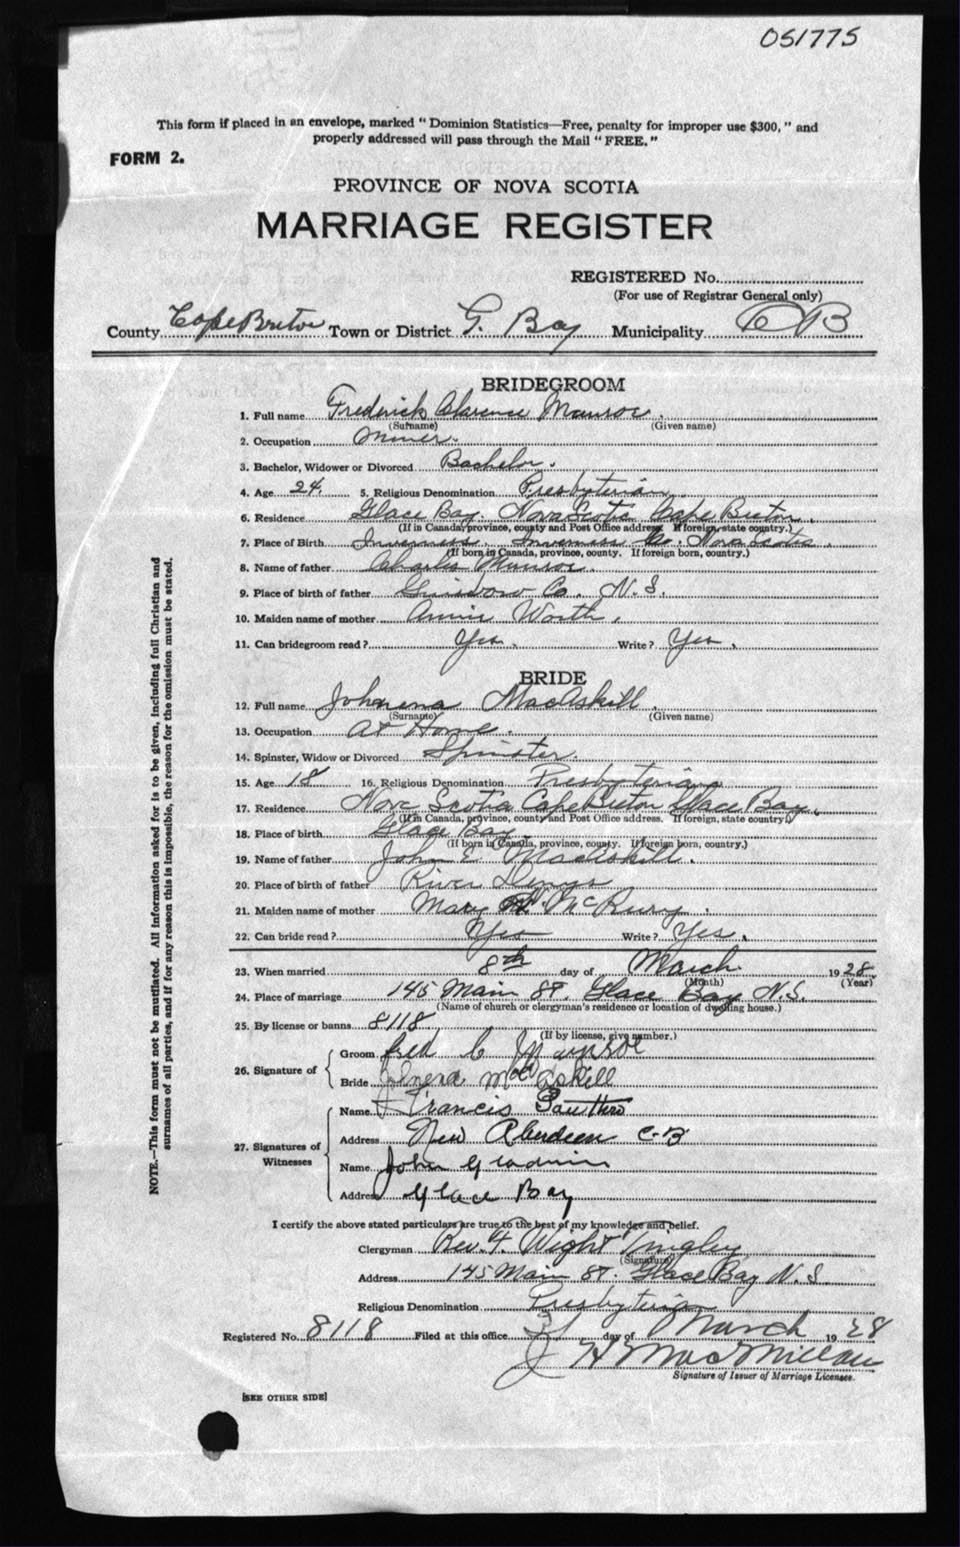 051775
This form if placed in an envelope, marked "Dominion Statistics—Free, penalty for improper use $300," and
properly addressed will pass through the Mail "FREE."
FORM 2.
PROVINCE OF NOVA SCOTIA
MARRIAGE REGISTER
REGISTERED No.
(For use of Registrar General only)
County Cape Breton Town or District G. Bay Municipality CB
BRIDEGROOM
1. Full name Frederick Clarence Munroe.
(Surname) (Given name)
2. Occupation Miner.
3. Bachelor, Widower or Divorced Bachelor.
4. Age 24. 5. Religious Denomination Presbyterian
6. Residence Glace Bay. Nova Scotia Cape Breton.
(If in Canada, province, county and Post Office address. If foreign, state country.)
7. Place of Birth Inverness. Inverness Co. Nova Scotia.
(If born in Canada, province, county. If foreign born, country.)
8. Name of father Charles Munroe.
9. Place of birth of father Co. N.S.
10. Maiden name of mother Annie Worth.
11. Can bridegroom read? Yes. Write? Yes.
BRIDE
12. Full name Johnena MacAskill.
(Surname) (Given name)
13. Occupation At Home.
14. Spinster, Widow or Divorced Spinster.
15. Age 18 16. Religious Denomination Presbyterian
17. Residence Nova Scotia Cape Breton Glace Bay.
(If in Canada, province, county and Post Office address. If foreign, state country.)
18. Place of birth Glace Bay
(If born in Canada, province, county. If foreign born, country.)
19. Name of father John E MacAskill.
20. Place of birth of father River Denys
21. Maiden name of mother Mary McRury.
22. Can bride read? Yes Write? Yes.
23. When married 8th day of March 1928.
(Month) (Year)
24. Place of marriage 145 Main St. Glace Bay N.S.
(Name of church or clergyman's residence or location of dwelling house.)
25. By license or banns 8118
(If by license, give number.)
26. Signature of
Groom Fred C Munroe
Bride Jhnena MacAskill
27. Signatures of Witnesses
Name Francis
Address New Aberdeen C-B
Name John
Address Glace Bay
I certify the above stated particulars are true to the best of my knowledge and belief.
Clergyman Rev. F. Wight Tingley
(Signature)
Address 145 Main St. Glace Bay N.S.
Religious Denomination Presbyterian
Registered No. 8118 Filed at this office 31 day of March 1928
J H MacMillan
Signature of Issuer of Marriage Licenses.
[SEE OTHER SIDE]
NOTE.—This form must not be mutilated. All information asked for is to be given, including full Christian and
surnames of all parties, and if for any reason this is impossible, the reason for the omission must be stated.